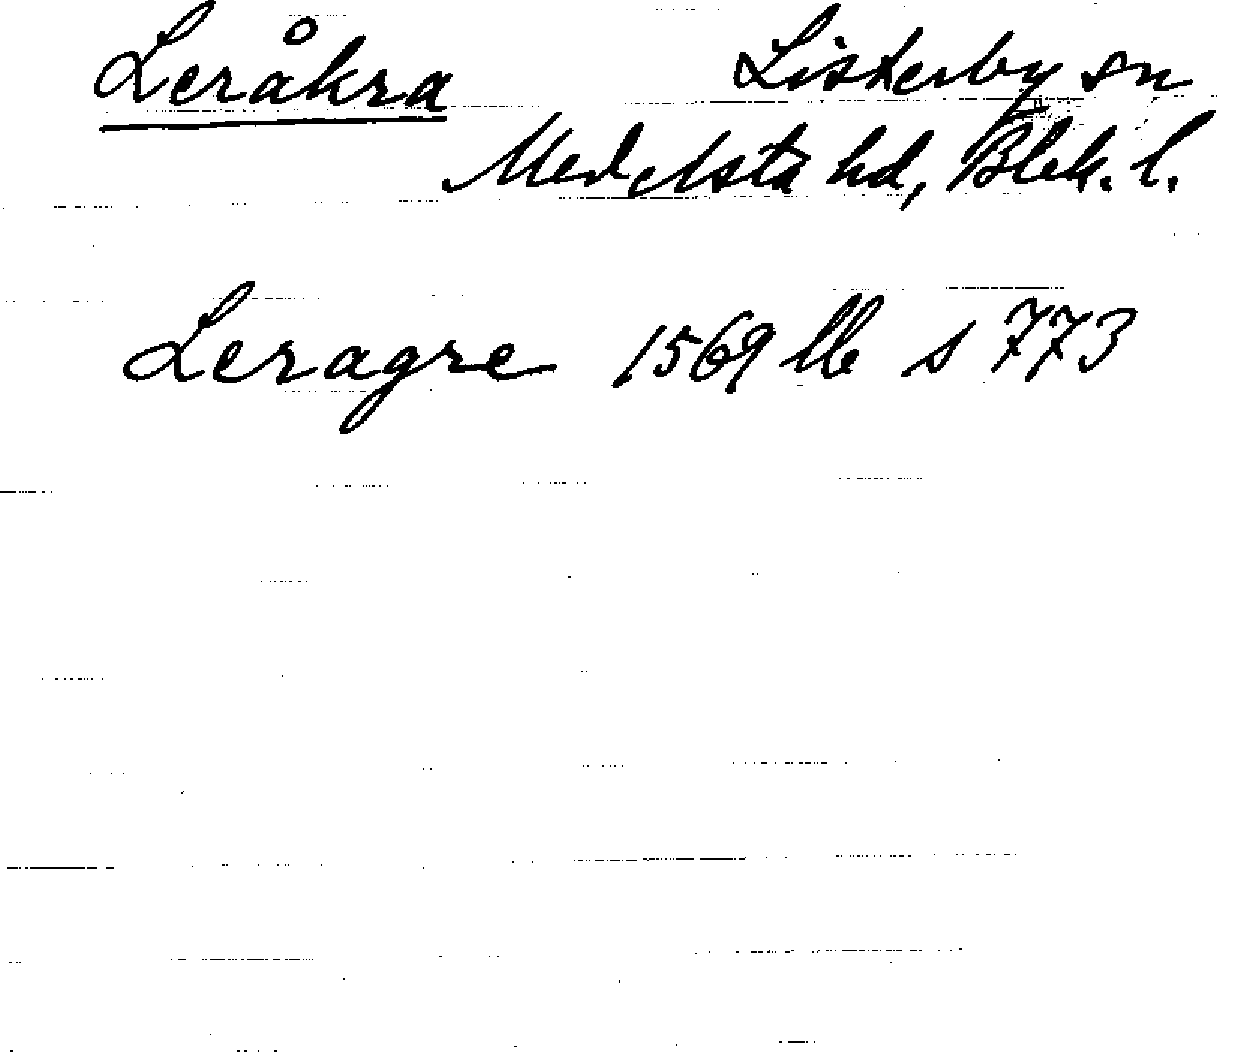 Leråkra Listerby sn
Medelsta hd, Blek. l.
Leragre 1569 llb s 773